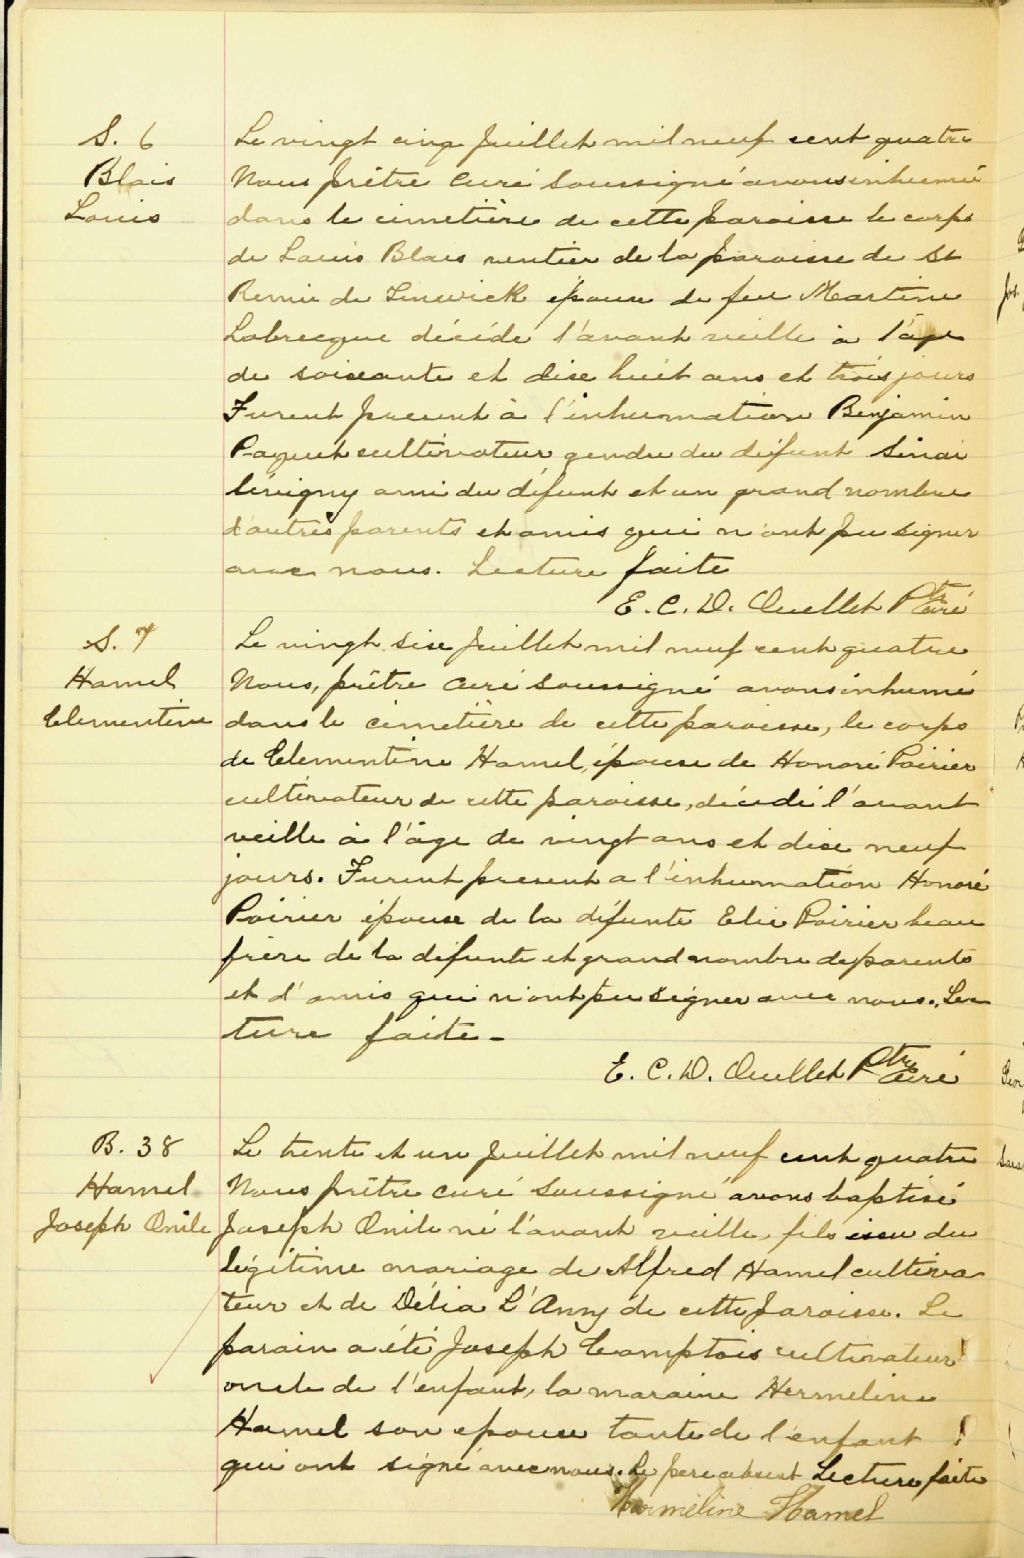 S. 6
Blais
Louis
Le vingt cinq Juillet mil neuf cent quatre
Nous prêtre curé soussigné avons inhumé
dans le cimetière de cette paroisse le corps
de Louis Blais rentier de la paroisse de St
Remie de Tinwick époux de feu Martine
Labrecque décédé l'avant veille à l'âge
de soixante et dix huit ans et trois jours
Furent présent à l'inhumation Benjamin
Paquet cultivateur gendre du défunt Sinai
Lévigny ami du défunt et un grand nombre
d'autres parents et amis qui n'ont pu signer
avec nous. Lecture faite
E. C. D. Ouellet Ptre curé
S. 7
Hamel
Clementine
Le vingt six Juillet mil neuf cent quatre
Nous, prêtre curé soussigné avons inhumé
dans le cimetière de cette paroisse, le corps
de Clementine Hamel, épouse de Honoré Poirier
cultivateur de cette paroisse, décédé l'avant
veille à l'âge de vingt ans et dix neuf
jours. Furent present a l'inhumation Honoré
Poirier époux de la défunte Elie Poirier beau
frère de la défunte et grand nombre de parents
et d'amis qui n'ont pu signer avec nous. Lec
ture faite -
E. C. D. Ouellet Ptre curé
B. 38
Hamel
Joseph Onile
Le trente et un Juillet mil neuf cent quatre
Nous prêtre curé soussigné avons baptisé
Joseph Onile né l'avant veille, fils issu du
légitime mariage de Alfred Hamel cultiva
teur et de Délia L'Anny de cette paroisse. Le
parain a été Joseph Comptois cultivateur
oncle de l'enfant, la maraine Hermeline
Hamel son epouse tante de l'enfant
qui ont signé avec nous. Le pere absent Lecture faite
Herméline Hamel